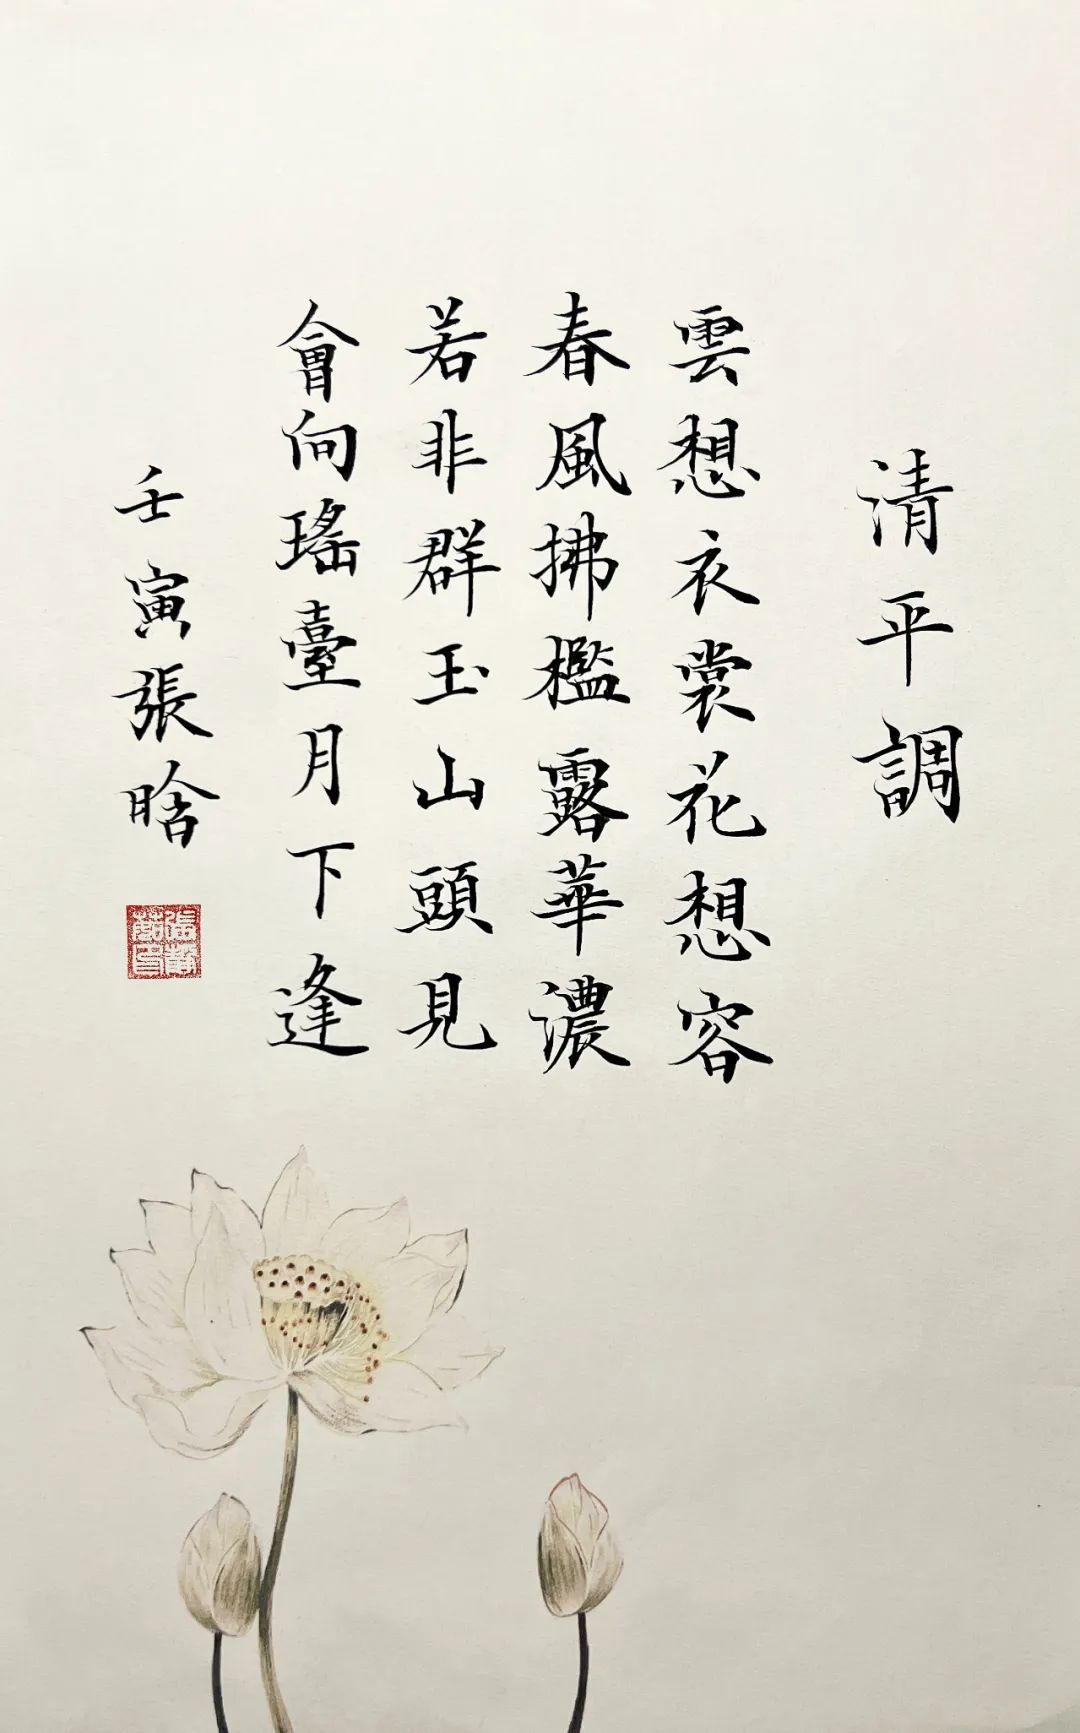 清平調
雲想衣裳花想容
春風拂檻露華濃
若非群玉山頭見
會向瑤臺月下逢
壬寅張晗